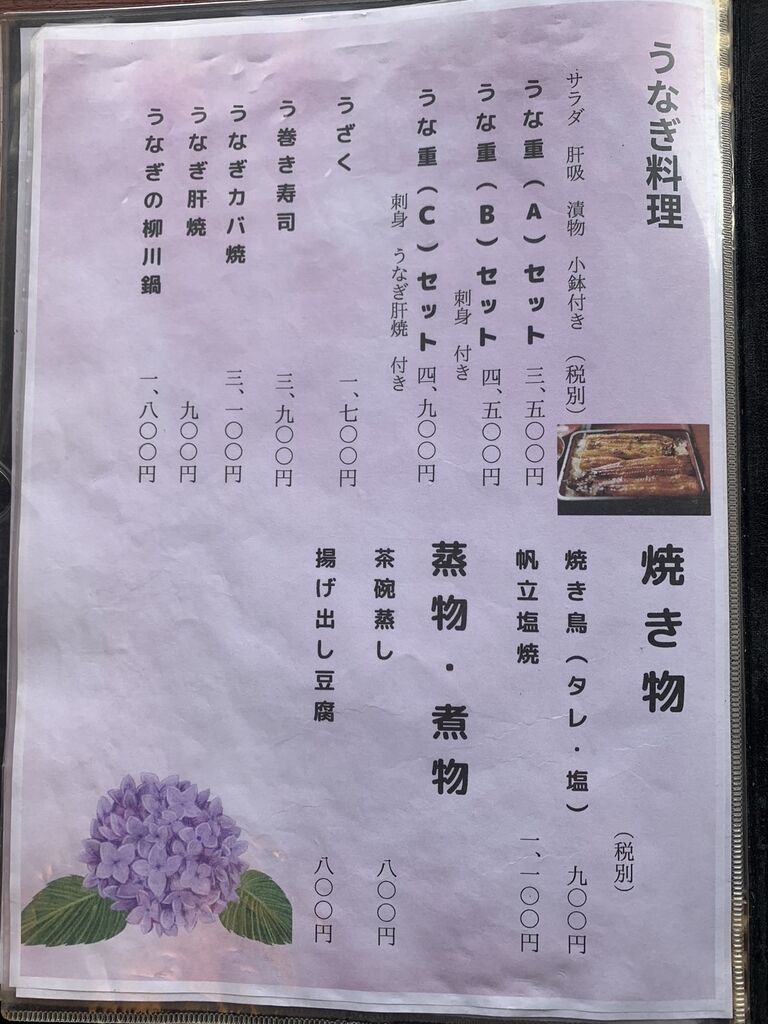 うなぎ料理
サラダ 肝吸 漬物 小鉢付き (税別)
うな重(A)セット 三、五〇〇円
うな重(B)セット 四、五〇〇円
刺身 付き
うな重(C)セット 四、九〇〇円
刺身 うなぎ肝焼 付き
うざく 一、七〇〇円
う巻き寿司 三、九〇〇円
うなぎカバ焼 三、一〇〇円
うなぎ肝焼 九〇〇円
うなぎの柳川鍋 一、八〇〇円
焼き物
(税別)
焼き鳥(タレ・塩) 九〇〇円
帆立塩焼 一、一〇〇円
蒸物・煮物
茶碗蒸し 八〇〇円
揚げ出し豆腐 八〇〇円